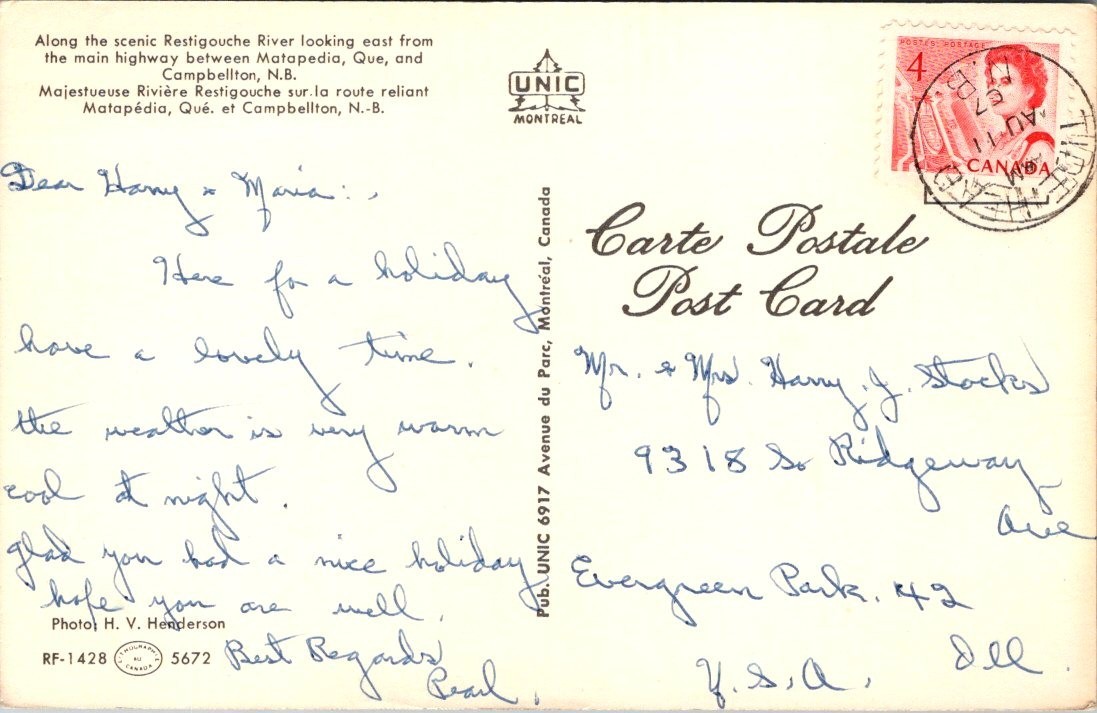 Along the scenic Restigouche River looking east from
the main highway between Matapedia, Que, and
Campbellton, N.B.
Majestueuse Rivière Restigouche sur la route reliant
Matapédia, Qué. et Campbellton, N.-B.
UNIC
MONTREAL
POSTES POSTAGE
4
CANADA
TIDE HEAD
AM
AU 11
67
N.B.
Carte Postale
Post Card
Dear Harry & Maria:,
Here for a holiday
have a lovely time.
the weather is very warm
cool at night.
glad you had a nice holiday
hope you are well.
Best Regards
Pearl.
Photo: H. V. Henderson
RF-1428 LITHOGRAPHIE AU CANADA 5672
Pub. UNIC 6917 Avenue du Parc, Montréal, Canada
Mr. & Mrs. Harry. J. Stocks
9318 So Ridgeway
Ave
Evergreen Park. 42
Ill.
U.S.A.